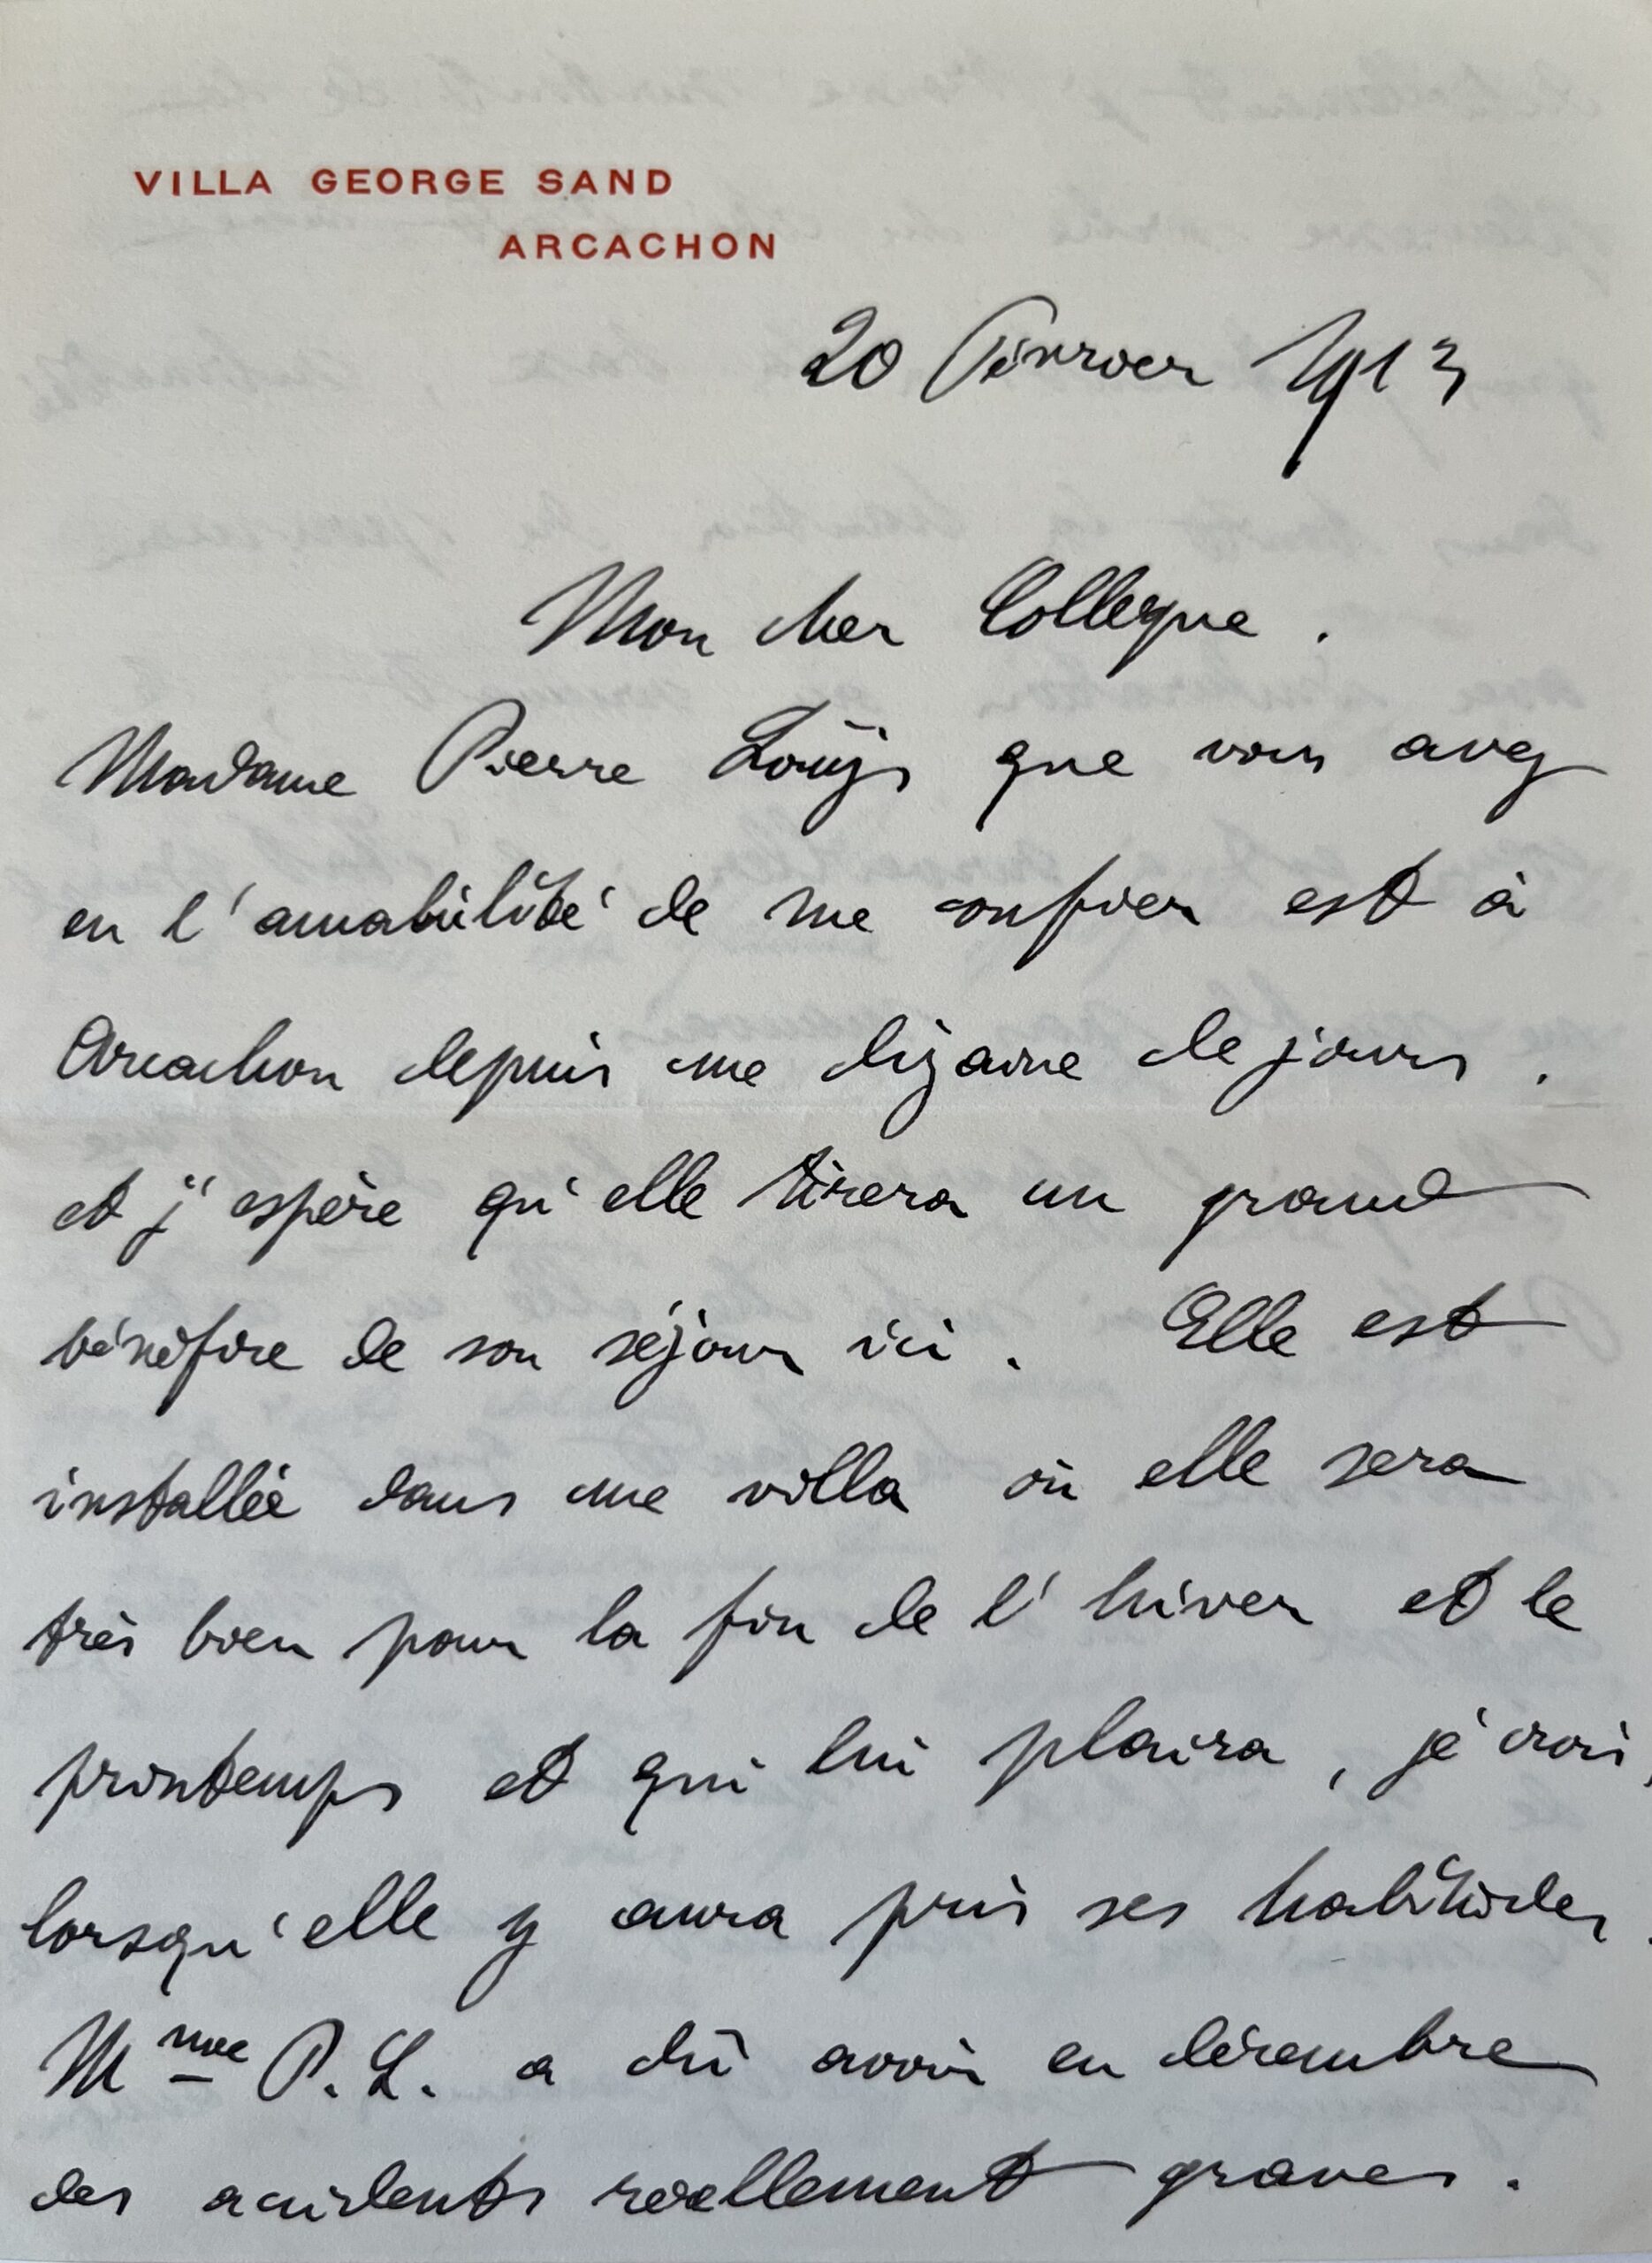 VILLA GEORGE SAND
ARCACHON
20 Février 1913
Mon cher Collegue.
Madame Pierre Louÿs que vous avez
eu l'amabilité de me confier est à
Arcachon depuis une dizaine de jours.
et j'espère qu'elle tirera un grand
bénéfice de son séjour ici. Elle est
installée dans une villa où elle sera
très bien pour la fin de l'hiver et le
printemps et qui lui plaira, je crois,
lorsqu'elle y aura pris ses habitudes.
Mme P. L. a dû avoir en décembre
des accidents reellement graves.